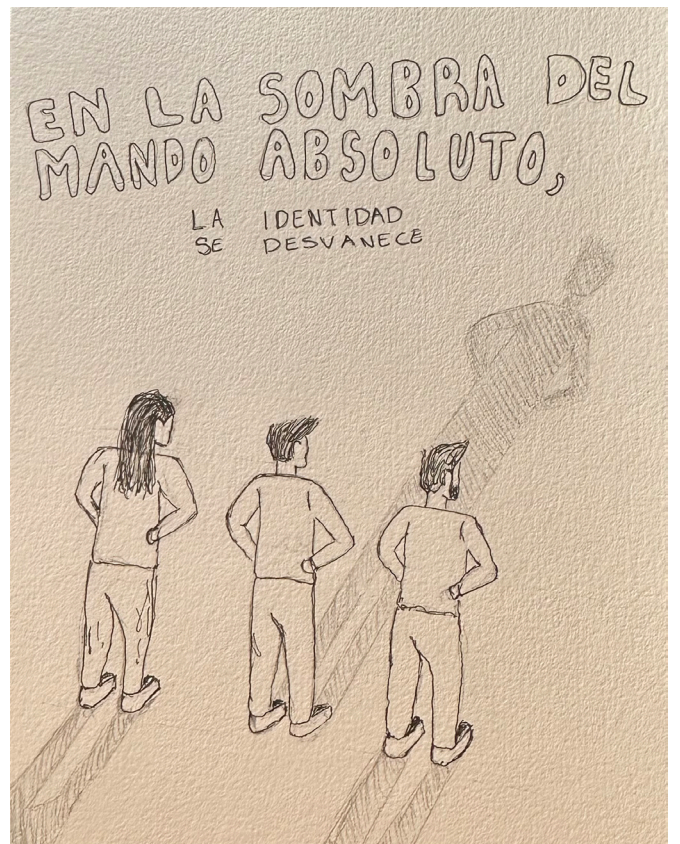 EN LA SOMBRA DEL
MANDO ABSOLUTO,
LA IDENTIDAD
SE DESVANECE